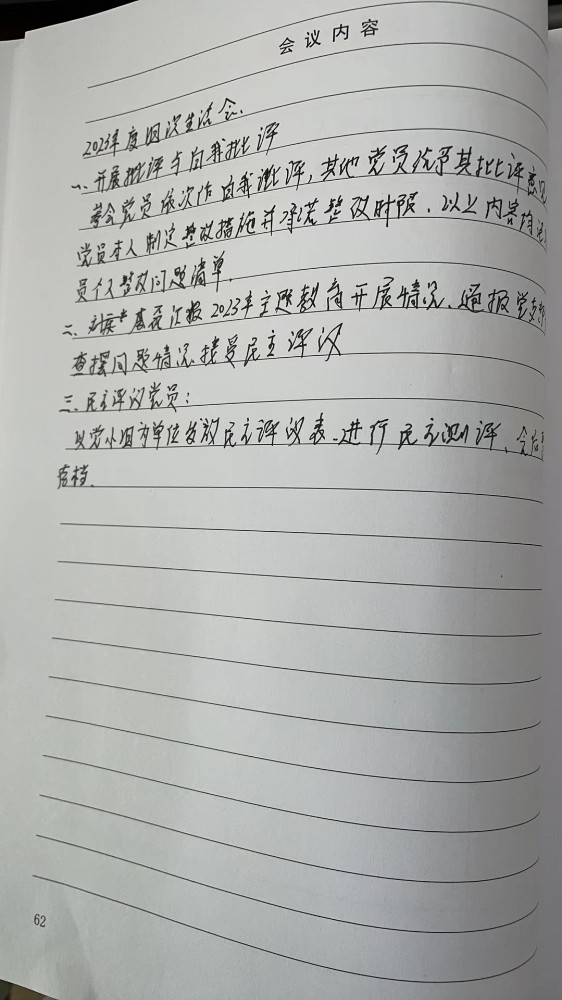 会议内容
2023年度组织生活会.
一、开展批评与自我批评
参会党员依次作自我批评,其他党员给予其批评意见
党员本人制定整改措施并承诺整改时限.以上内容均
员个人整改问题清单.
二、汇报2023年主题教育开展情况、通报党支部
查摆问题情况.接受民主评议
三、民主评议党员:
以党小组为单位发放民主评议表.进行民主测评、会后
存档.
62